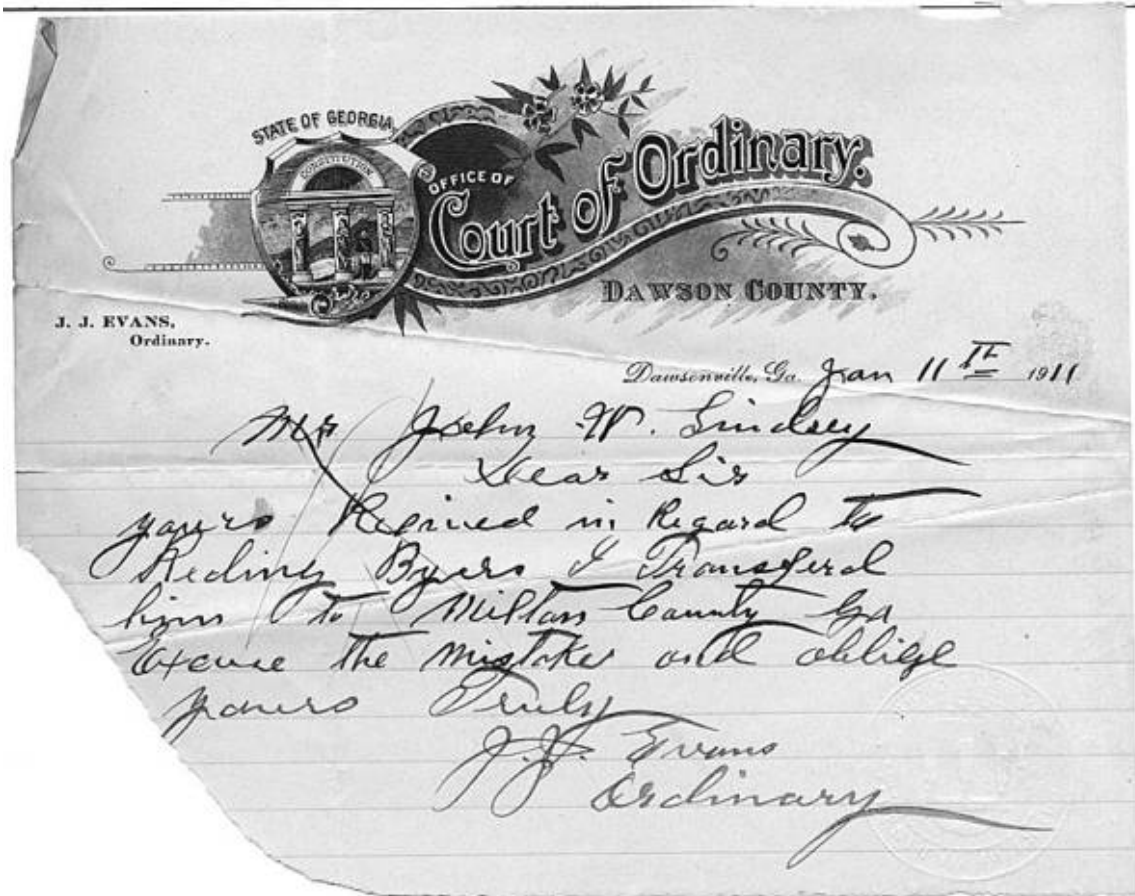 STATE OF GEORGIA
CONSTITUTION
OFFICE OF
Court of Ordinary.
DAWSON COUNTY.
J. J. EVANS,
Ordinary.
Dawsonville, Ga. Jan 11th 1911
Mr John W. Lindsey
Dear Sir
yours Recived in Regard to
Reding Byers I Transferd
him to Milton County Ga
Excuse the mistake and oblige
yours Truly
J. J. Evans
Ordinary